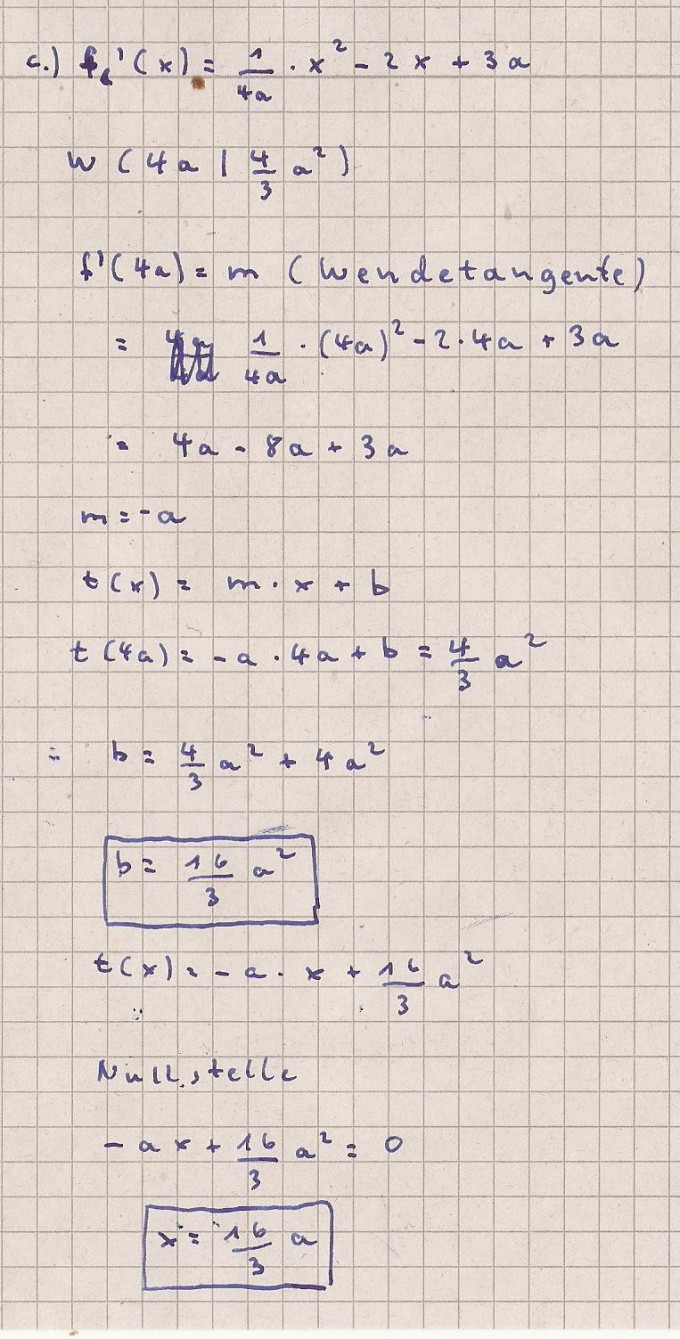 c.) fₐ'(x) = 1/4a · x² - 2x + 3a
W (4a | 4/3 a²)
f'(4a) = m (Wendetangente)
= 1/4a · (4a)² - 2·4a + 3a
= 4a - 8a + 3a
m = -a
t(x) = m · x + b
t(4a) = -a · 4a + b = 4/3 a²
= b = 4/3 a² + 4a²
b = 16/3 a²
t(x) = -a · x + 16/3 a²
Nullstelle
-ax + 16/3 a² = 0
x = 16/3 a